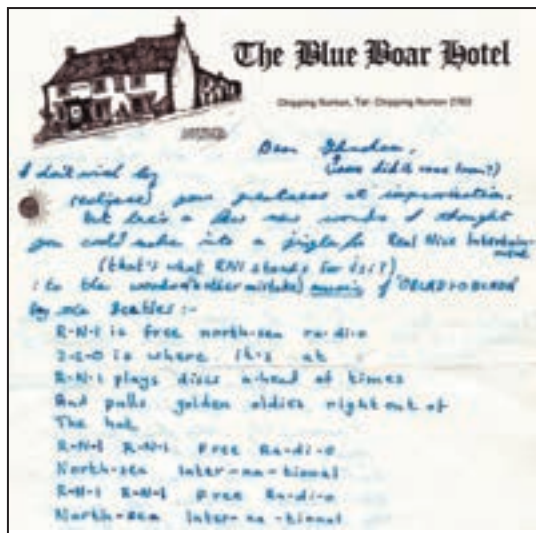 The Blue Boar Hotel
Chipping Norton, Tel: Chipping Norton
Dear
I don't wish by
your greatness at improvisation.
but here's a few new words I thought
you could make into a jingle for Real Nice Intertain-
ment
(that's what RNI stands for isit?)
: to the words (another mistake) music of 'OBLADIOBLADA'
by the Beatles :-
R-N-I is free north-sea ra-di-o
2-2-0 is where it's at
R-N-I plays discs ahead of times
And pulls golden oldies right out of
The hat
R-N-I R-N-I Free Ra-di-o
North-sea Inter-na-tional
R-N-I R-N-I Free Ra-di-o
North-sea Inter-na-tional